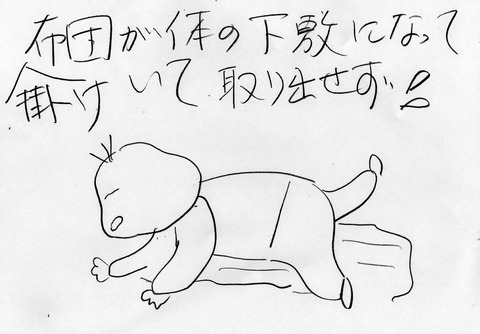 布団が体の下敷になって
掛け いて取り出せず!